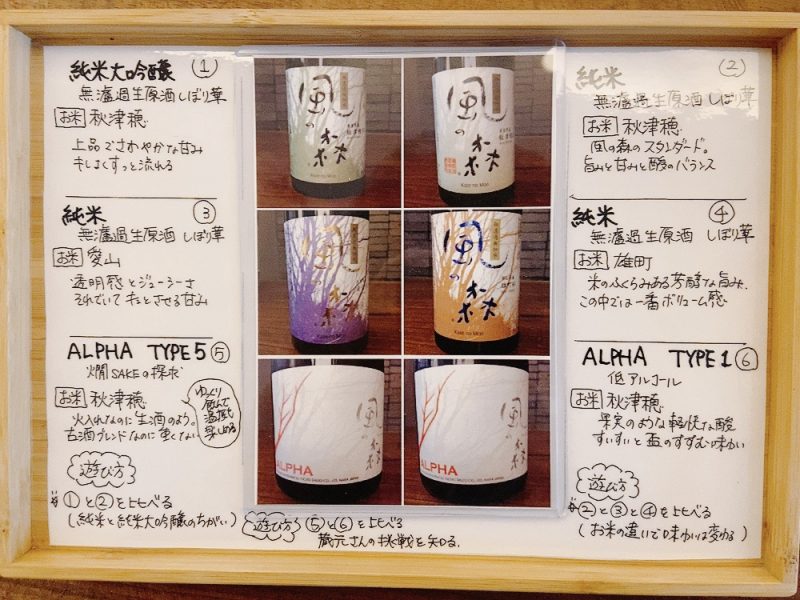 純米大吟醸 ①
無濾過生原酒 しぼり華
お米 秋津穂
上品でさわやかな甘み
キレよくすっと流れる
純米 ③
無濾過生原酒 しぼり華
お米 愛山
透明感とジューシーさ
それでいてホッとさせる甘み
ALPHA TYPE 5 ⑤
燗SAKEの探求
お米 秋津穂
火入れなのに生酒のよう。
古酒ブレンドなのに重くない
ゆっくり
飲んで
温度も
楽しめる
遊び方
①と②を比べる
(純米と純米大吟醸のちがい)
風の森
Kaze no Mori
風の森
Kaze no Mori
風の森
Kaze no Mori
風の森
Kaze no Mori
風の森
ALPHA
風の森
ALPHA
遊び方 ⑤と⑥を比べる
蔵元さんの挑戦を知る.
純米 ②
無濾過生原酒 しぼり華
お米 秋津穂.
風の森のスタンダード。
旨みと甘みと酸のバランス
純米 ④
無濾過生原酒 しぼり華
お米 雄町
米のふくらみある芳醇な旨み.
この中では一番ボリューム感
ALPHA TYPE 1 ⑥
低アルコール
お米 秋津穂
果実のような軽快な酸
すいすいと盃のすすむ味わい
遊び方
②と③と④を比べる
(お米の違いで味わいは変わる)